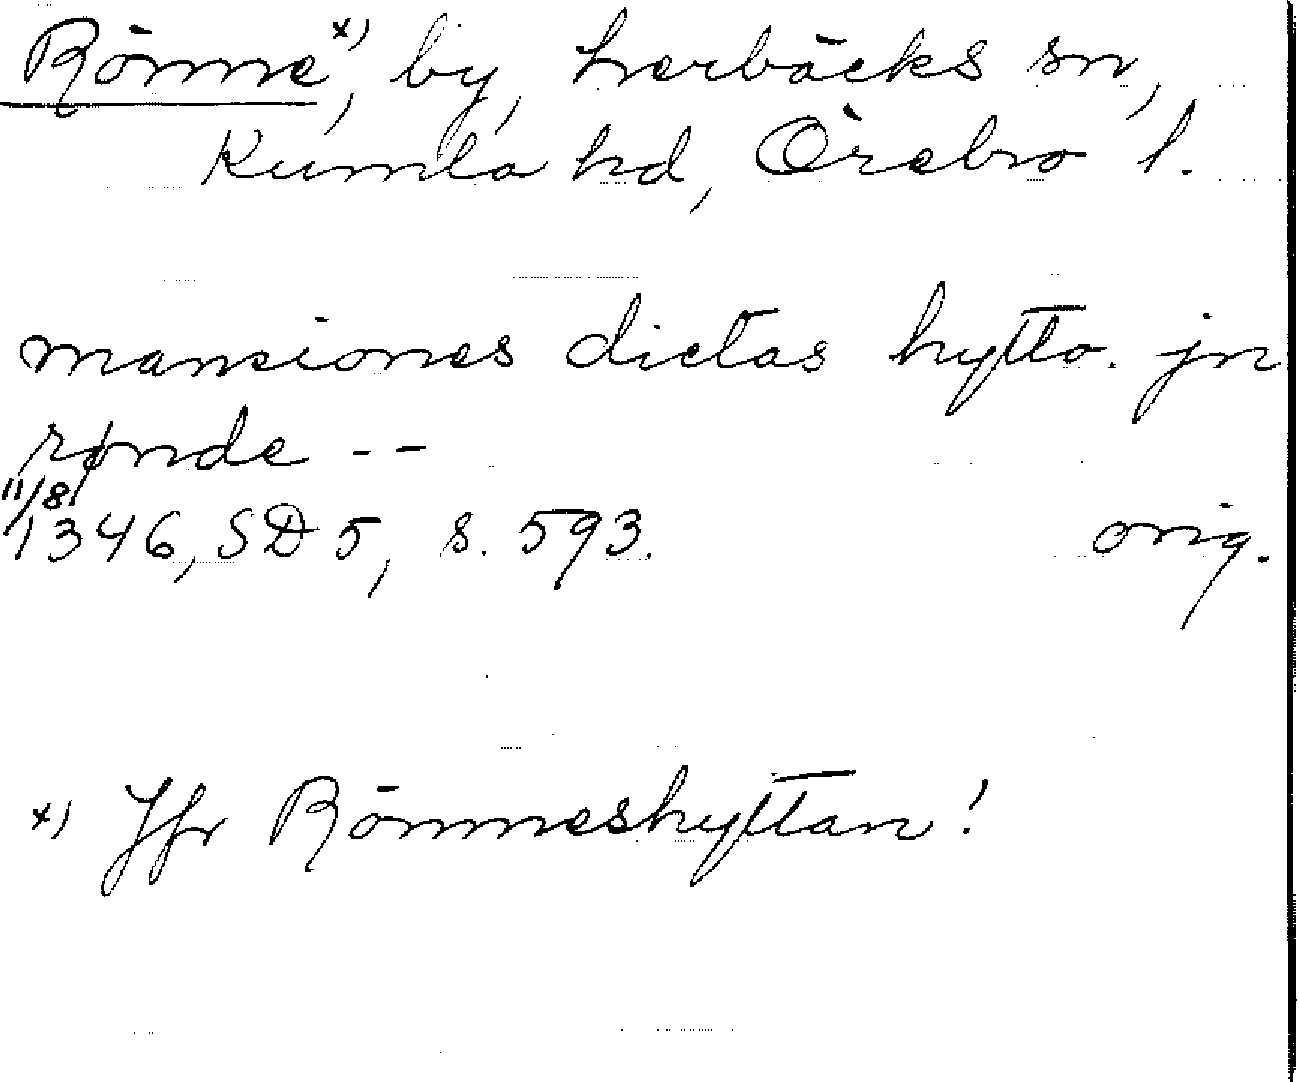 Rönne x), by, Lerbäcks sn,
Kumla hd, Örebro l.
mansiones dictas hytto. jn
rønde --
11/8
1346, SD 5, s. 593. orig.
x) Jfr Rönneshyttan!